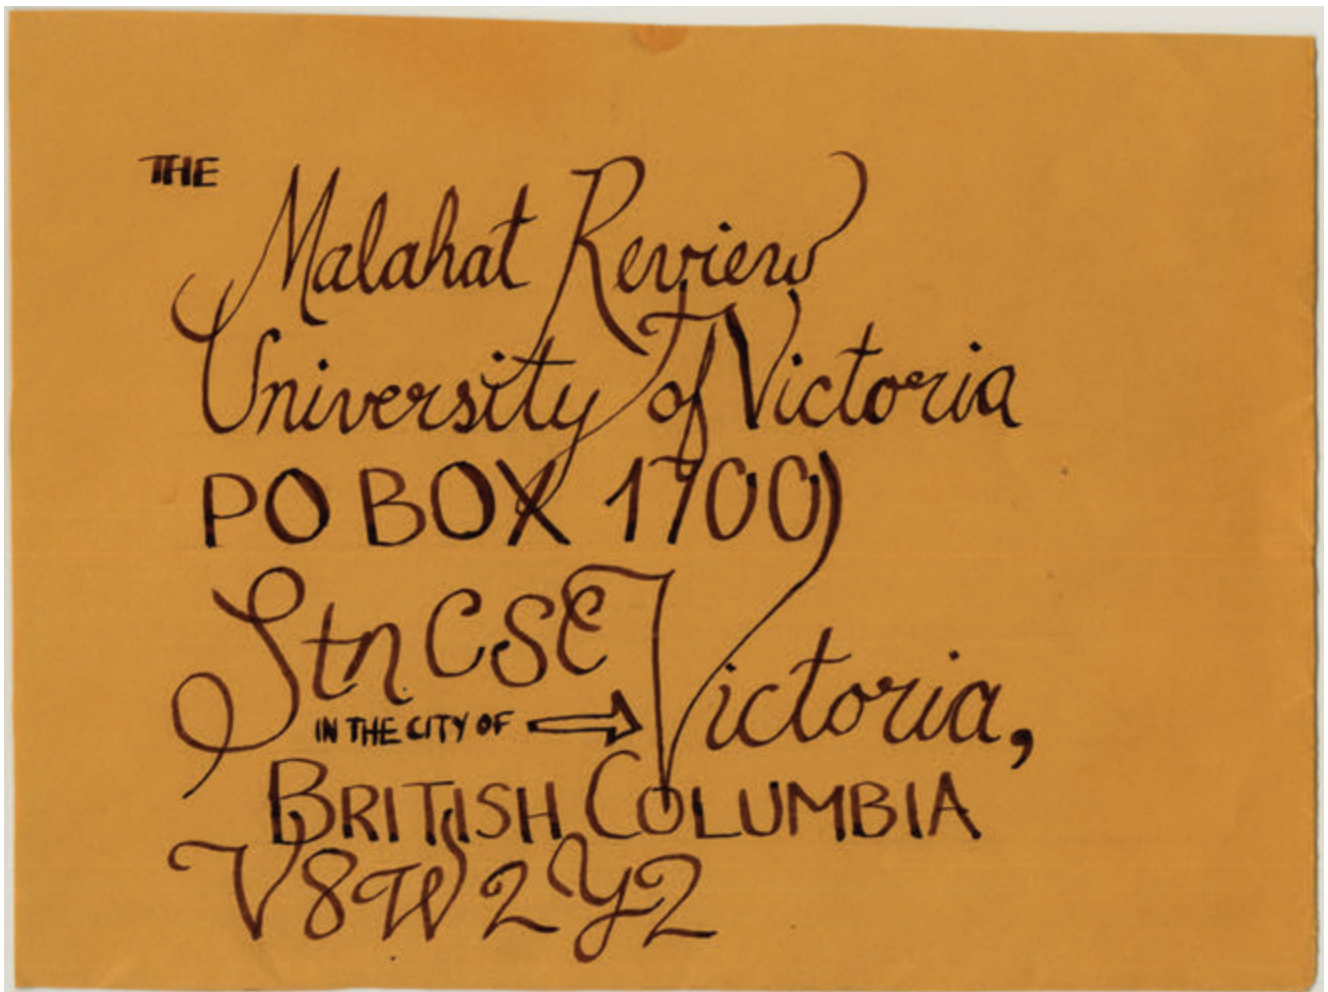 THE
Malahat Review
University of Victoria
PO BOX 1700
Stn CSC
IN THE CITY OF
Victoria,
BRITISH COLUMBIA
V8W 2Y2